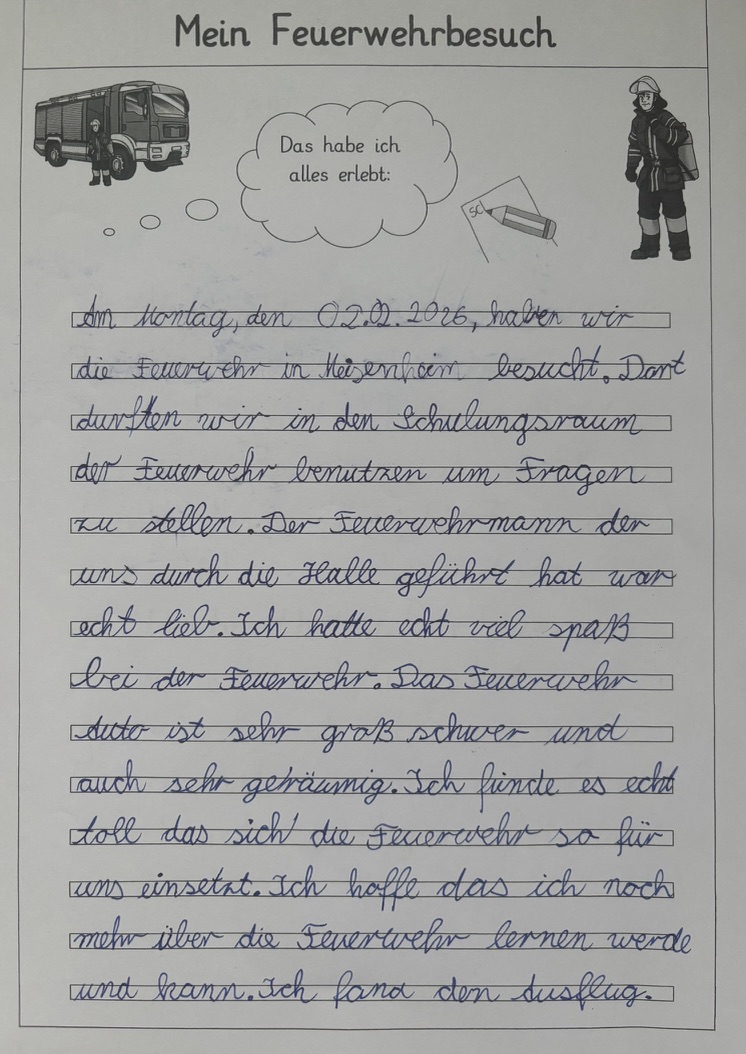 Mein Feuerwehrbesuch
Das habe ich
alles erlebt:
Am Montag, den 02.02.2026, haben wir
die Feuerwehr in Meisenheim besucht. Dort
durften wir in den Schulungsraum
der Feuerwehr benutzen um Fragen
zu stellen. Der Feuerwehrmann der
uns durch die Halle geführt hat war
echt lieb. Ich hatte echt viel spaß
bei der Feuerwehr. Das Feuerwehr
Auto ist sehr groß schwer und
auch sehr geräumig. Ich fünde es echt
toll das sich die Feuerwehr so für
uns einsetzt. Ich hoffe das ich noch
mehr über die Feuerwehr lernen werde
und kann. Ich fand den Ausflug.